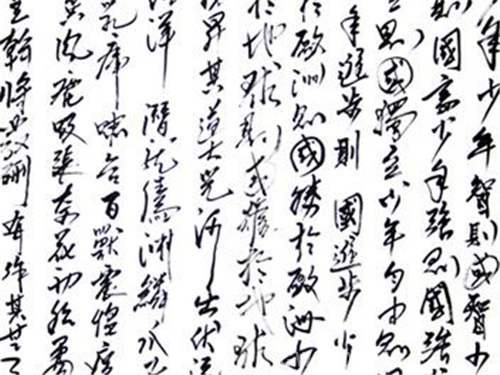 年少年智則國智少
則國富少年強則國強
則國獨立少年自由則
年進步則國進步少
於歐洲則國勝於歐洲少
於地球則國雄於地球
昇其道大光河出伏流
洋潛龍騰淵鱗爪飛
乳虎嘯谷百獸震惶鷹
翼風塵吸張奇花初胎矞
皇幹將發硎有作其芒